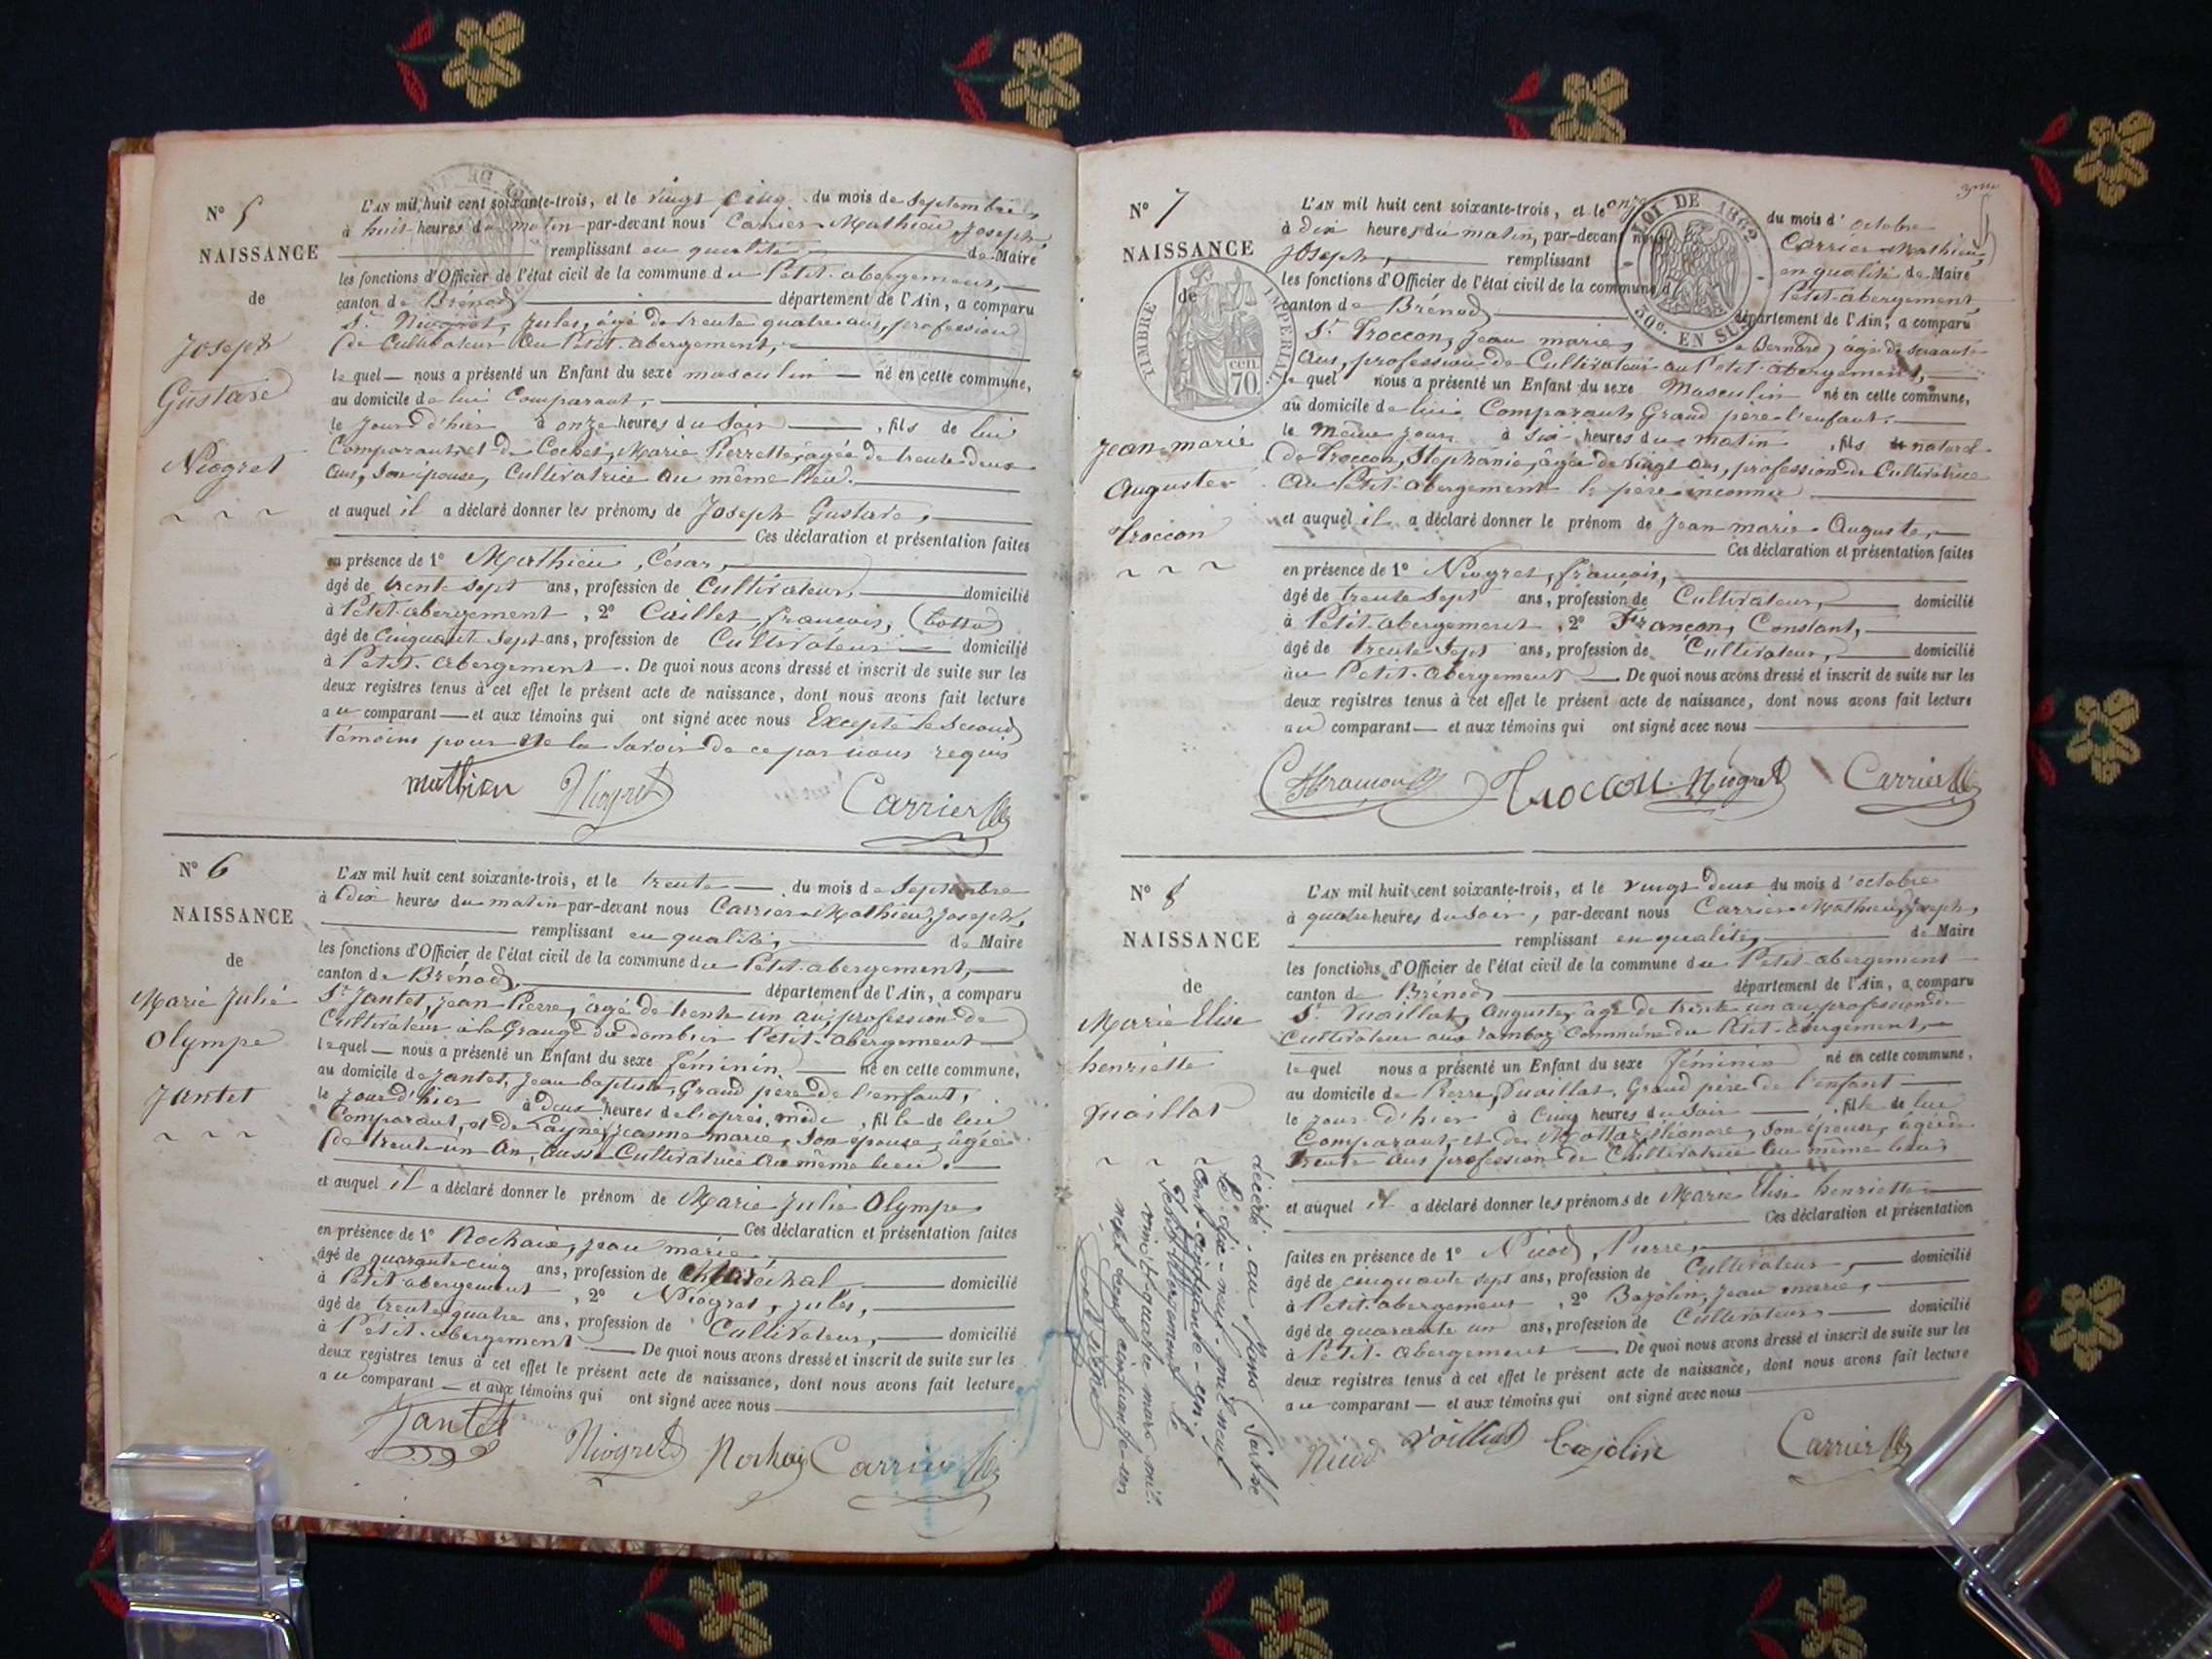 N° 5
NAISSANCE
de
Joseph
Gustave
Niogret
L'AN mil huit cent soixante-trois, et le vingt cinq du mois de Septembre,
à huit heures du matin par-devant nous Carrier-Mathieu, Joseph,
remplissant en qualité de Maire
les fonctions d'Officier de l'état civil de la commune du Petit-abergement,
canton de Brénod département de l'Ain, a comparu
Sr Niogret, Jules, âgé de trente quatre ans, profession
de Cultivateur au Petit-abergement,
lequel nous a présenté un Enfant du sexe masculin né en cette commune,
au domicile de lui Comparant,
le jour d'hier à onze heures du Soir, fils de lui
Comparant, et de Cochet, Marie Pierrette, âgée de trente deux
ans, Son épouse, Cultivatrice au même lieu.
et auquel il a déclaré donner les prénoms de Joseph Gustave,
Ces déclaration et présentation faites
en présence de 1° Mathieu, César,
âgé de trente sept ans, profession de Cultivateur, domicilié
à Petit-abergement, 2° Caillet, françois,
âgé de Cinquante Sept ans, profession de Cultivateur domicilié
à Petit-abergement. De quoi nous avons dressé et inscrit de suite sur les
deux registres tenus à cet effet le présent acte de naissance, dont nous avons fait lecture
au comparant et aux témoins qui ont signé avec nous Excepté le Second
témoins pour ne le Savoir de ce par nous requis
mathieu Niogret Carrier
N° 6
NAISSANCE
de
Marie Julie
Olympe
Jantet
L'AN mil huit cent soixante-trois, et le trente du mois de Septembre
à dix heures du matin par-devant nous Carrier-Mathieu, Joseph,
remplissant en qualité, de Maire
les fonctions d'Officier de l'état civil de la commune du Petit-abergement,
canton de Brénod, département de l'Ain, a comparu
Sr Jantet, Jean Pierre, âgé de trente un an, profession de
Cultivateur à la Grange du Petit-abergement
lequel nous a présenté un Enfant du sexe féminin né en cette commune,
au domicile de Jantet, Jean baptiste, Grand père de l'enfant,
le jour d'hier à deux heures de l'après midi, fille de lui
Comparant, et de Jeanne marie, Son épouse, âgée
de trente un an, aussi Cultivatrice au même lieu.
et auquel il a déclaré donner le prénom de Marie Julie Olympe
Ces déclaration et présentation faites
en présence de 1° Rochaix, Jean marie
âgé de quarante cinq ans, profession de Maréchal domicilié
à Petit abergement, 2° Niogret, Jules,
âgé de trente quatre ans, profession de Cultivateur, domicilié
à Petit-abergement De quoi nous avons dressé et inscrit de suite sur les
deux registres tenus à cet effet le présent acte de naissance, dont nous avons fait lecture
au comparant et aux témoins qui ont signé avec nous
Jantet Niogret Rochaix Carrier
3me
N° 7
NAISSANCE
de
TIMBRE IMPERIAL
70 cen.
LOI DE 1862
30c. EN SUS
Jean-marie
Auguste
Troccon
L'AN mil huit cent soixante-trois, et le onze du mois d'octobre
à dix heures du matin, par-devant nous Carrier-Mathieu,
Joseph, remplissant en qualité de Maire
les fonctions d'Officier de l'état civil de la commune du Petit-abergement
canton de Brénod département de l'Ain, a comparu
Sr Troccon, Jean marie, Bernard, âgé de Soixante
ans, profession de Cultivateur au Petit-abergement,
lequel nous a présenté un Enfant du sexe Masculin né en cette commune,
au domicile de lui Comparant, Grand père l'enfant.
le même jour à Six heures du matin, fils naturel
de Troccon, Stephanie, âgée de vingt ans, profession de Cultivatrice
au Petit-abergement le père inconnu
et auquel il a déclaré donner le prénom de Jean-marie-Auguste,
Ces déclaration et présentation faites
en présence de 1° Niogret, françois,
âgé de trente Sept ans, profession de Cultivateur, domicilié
à Petit-abergement, 2° Françon, Constant,
âgé de trente Sept ans, profession de Cultivateur, domicilié
au Petit-abergement De quoi nous avons dressé et inscrit de suite sur les
deux registres tenus à cet effet le présent acte de naissance, dont nous avons fait lecture
au comparant et aux témoins qui ont signé avec nous
Françon Troccon Niogret Carrier
N° 8
NAISSANCE
de
Marie Elise
henriette
Vuaillat
L'AN mil huit cent soixante-trois, et le vingt deux du mois d'octobre
à quatre heures du Soir, par-devant nous Carrier-Mathieu, Joseph,
remplissant en qualité, de Maire
les fonctions d'Officier de l'état civil de la commune du Petit-abergement
canton de Brénod département de l'Ain, a comparu
Sr Vuaillat, Auguste, âgé de trente un an, profession de
Cultivateur aux Commune du Petit-abergement,
lequel nous a présenté un Enfant du sexe féminin né en cette commune,
au domicile de Pierre, Vuaillat, Grand père de l'enfant
le jour d'hier à Cinq heures du Soir, fille de lui
Comparant, et de Son épouse, âgée de
trente ans profession de Cultivatrice au même lieu,
et auquel il a déclaré donner les prénoms de Marie Elise henriette
Ces déclaration et présentation
faites en présence de 1° Nicod, Pierre,
âgé de cinquante sept ans, profession de Cultivateur, domicilié
à Petit-abergement, 2° Bajolin, Jean marie,
âgé de quarante un ans, profession de Cultivateur, domicilié
à Petit-abergement De quoi nous avons dressé et inscrit de suite sur les
deux registres tenus à cet effet le présent acte de naissance, dont nous avons fait lecture
au comparant et aux témoins qui ont signé avec nous
Nicod Voillat bajolin Carrier
décédé au Mans Sarthe
le dix-neuf mil neuf
cent cinquante-un.
Petit Abergement le
vingt quatre mars mil
neuf cent cinquante-un